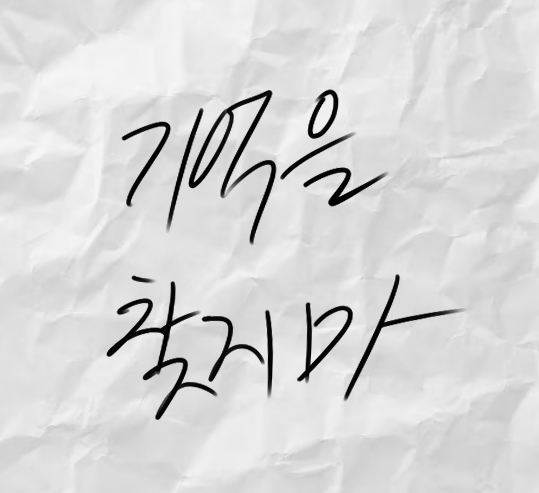 기억을
찾지마